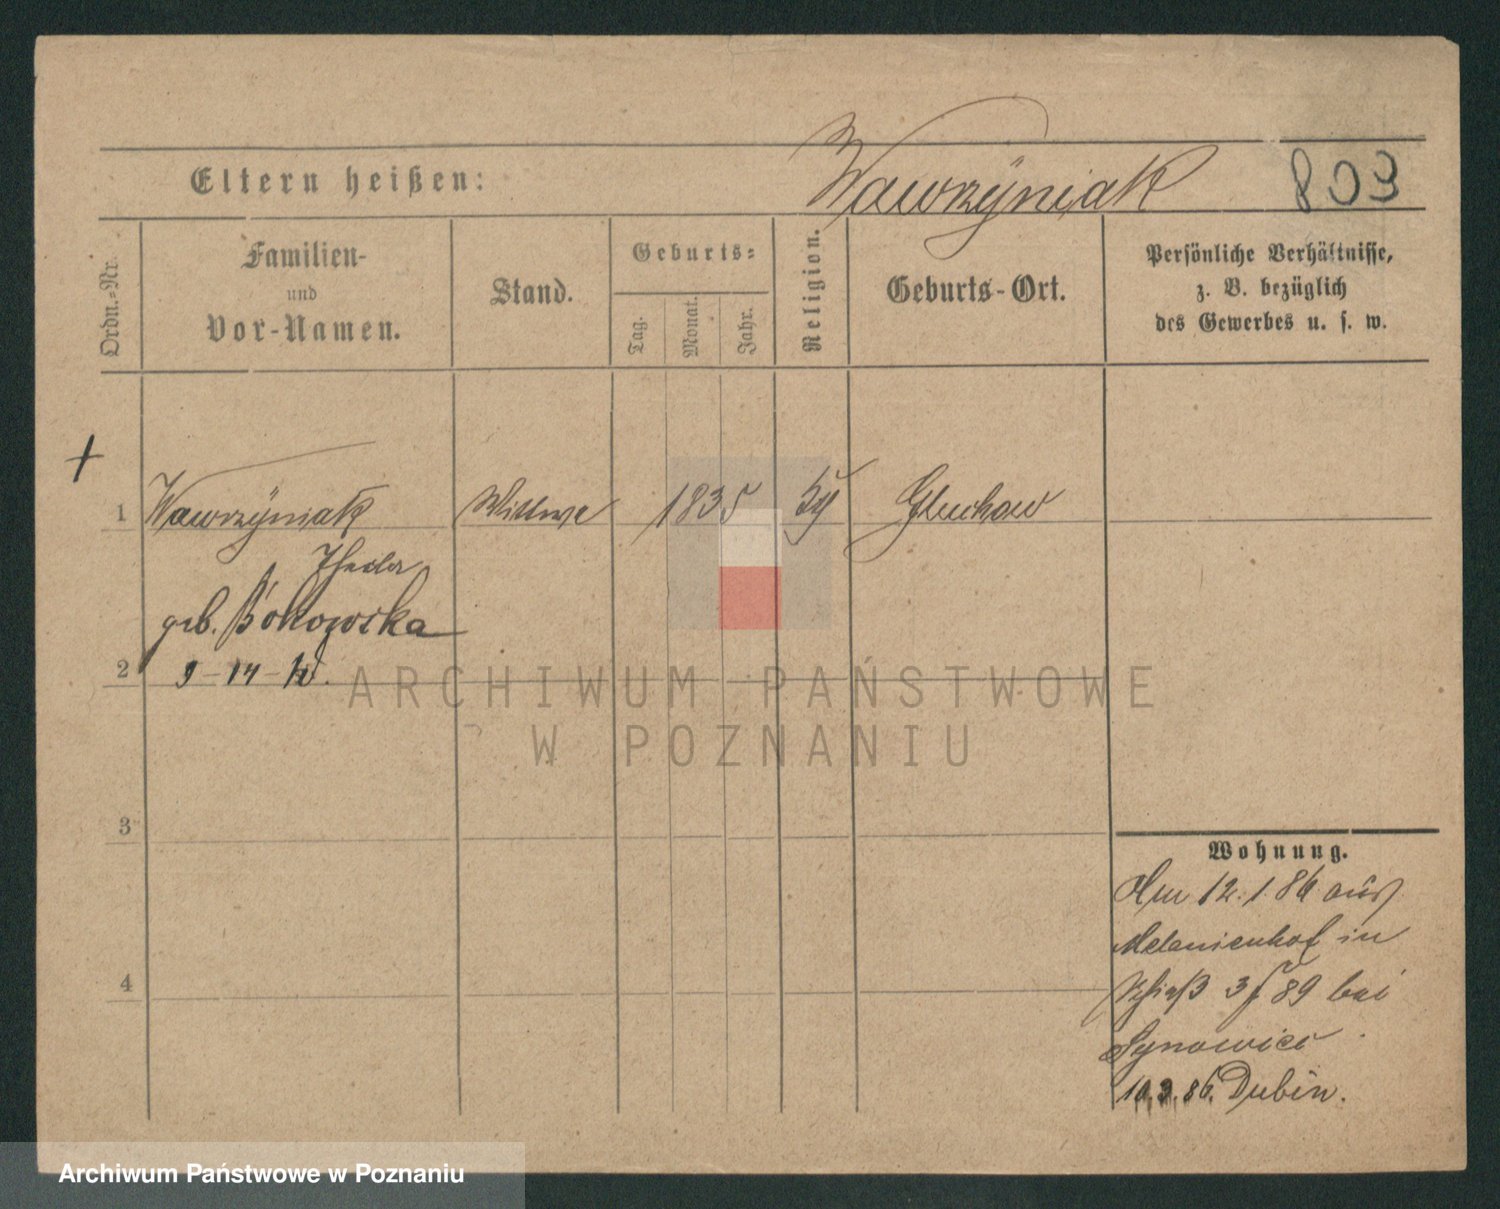 Wawrzÿniak 803
Eltern heißen:
Ordn.-Nr.
Familien-
und
Vor-Namen.
Stand.
Geburts-
Tag.
Monat.
Jahr.
Religion.
Geburts-Ort.
Persönliche Verhältnisse,
z. B. bezüglich
des Gewerbes u. s. w.
+
1 Wawrzÿniak Wittwe 1835 Gluchow
Thecla
geb.
2
ARCHIWUM PAŃSTWOWE
W POZNANIU
3
4
Wohnung.
Am 12.1.86 aus
Melanienhof in
89 bei
Synowiec
10.3.86. Dubin.
Archiwum Państwowe w Poznaniu